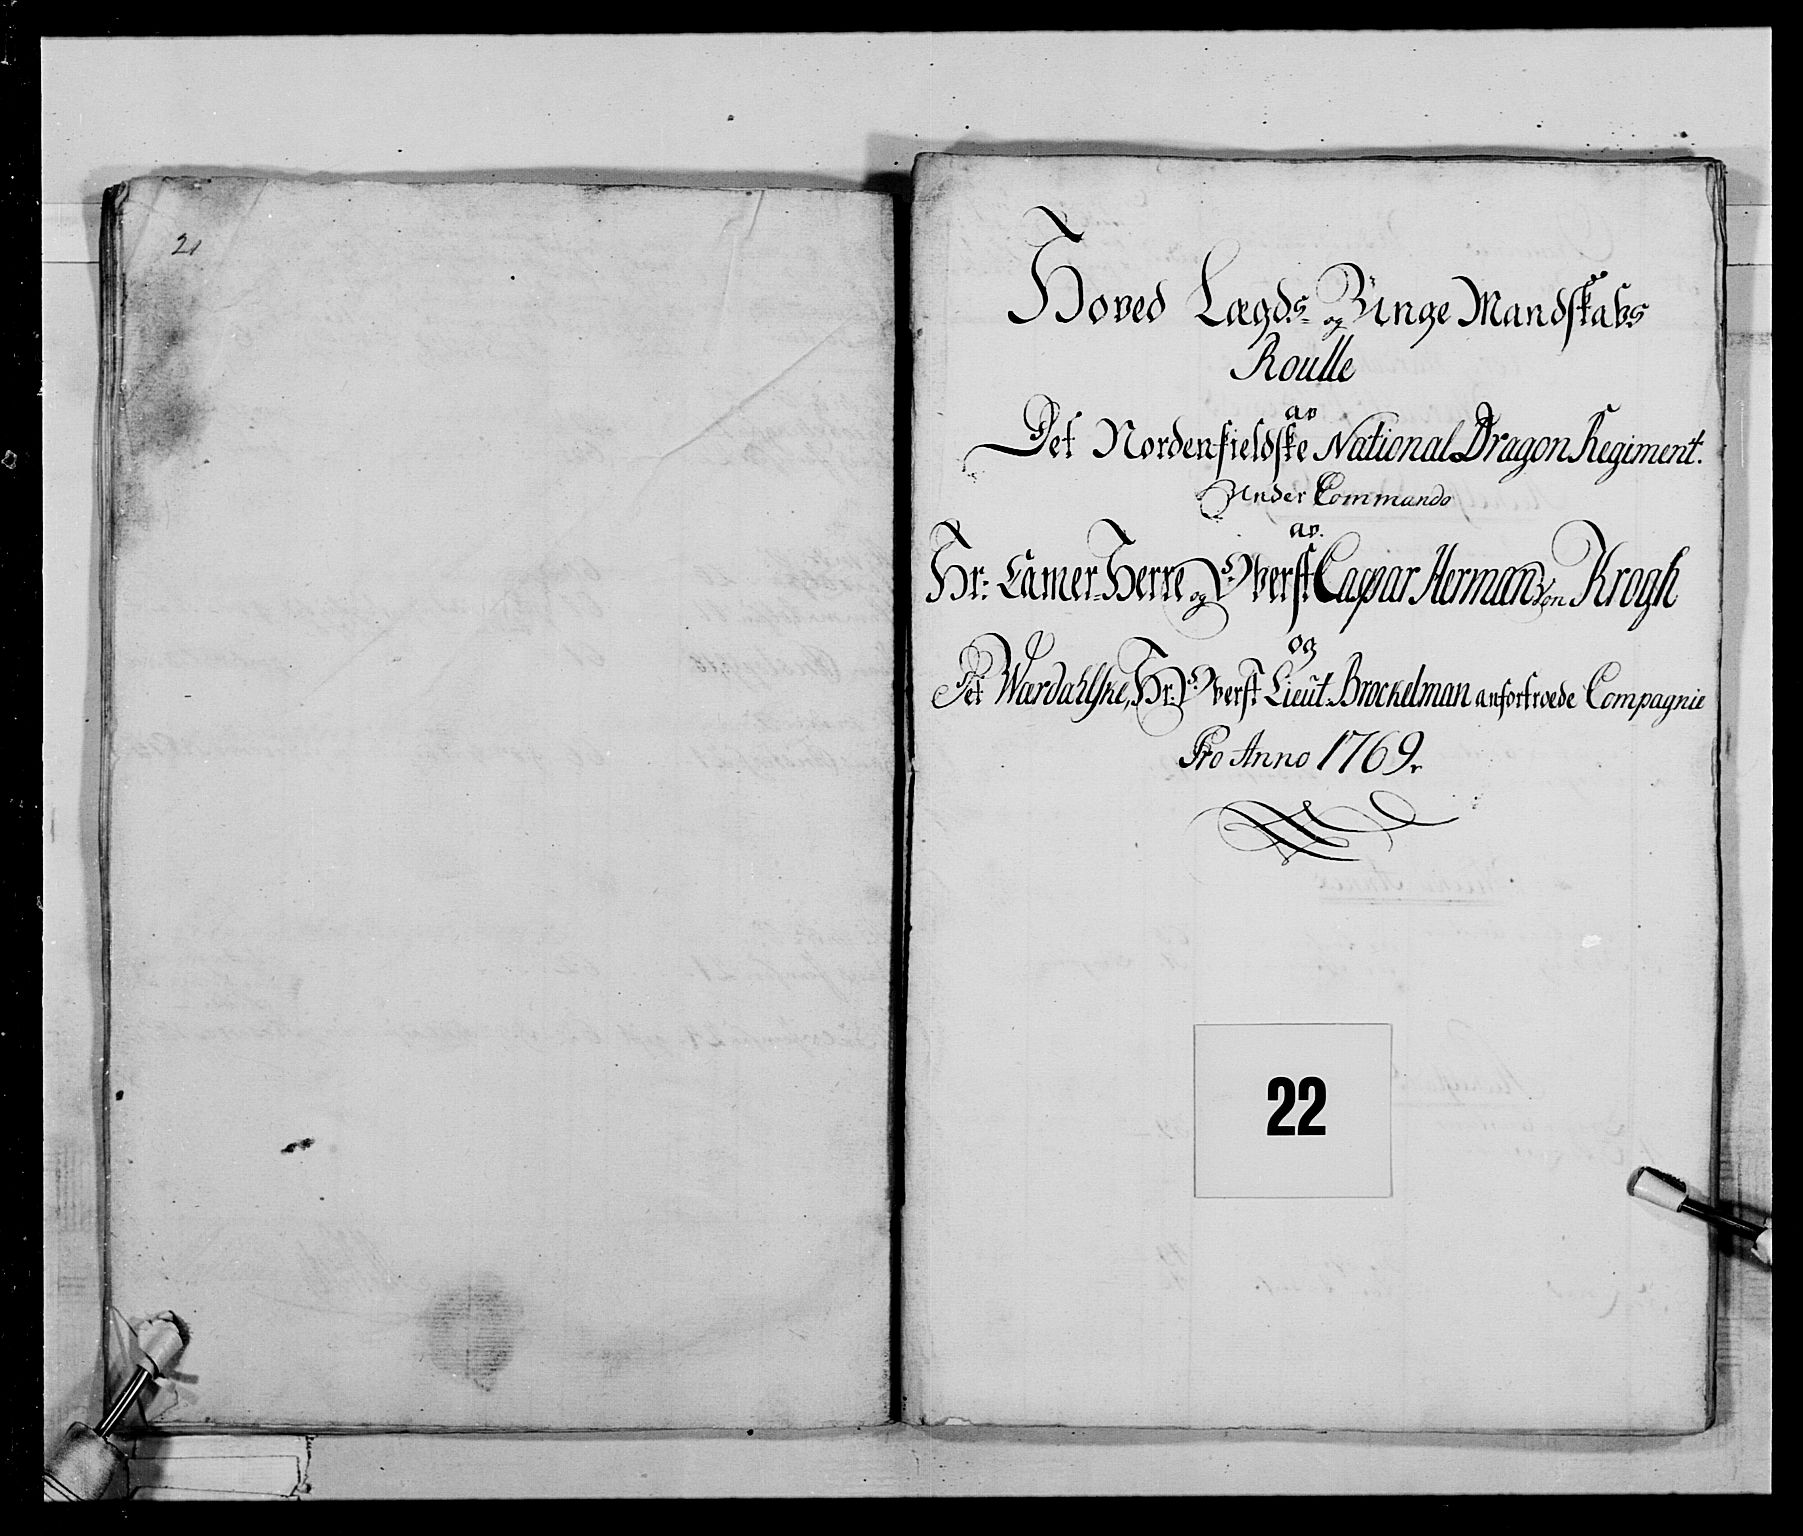 21
Hoved Lægds- og Unge Mandskabs
Roulle
av
Det Nordenfieldske National Dragon Regiment.
Under Commando
av.
Hr: Camer-Herre og Oberst Caspar Herman von Krogh
og
Det Wærdahlske, Hr: Oberst Lieut: Brockelman anfortroede Compagnie
Pro Anno 1769.
22